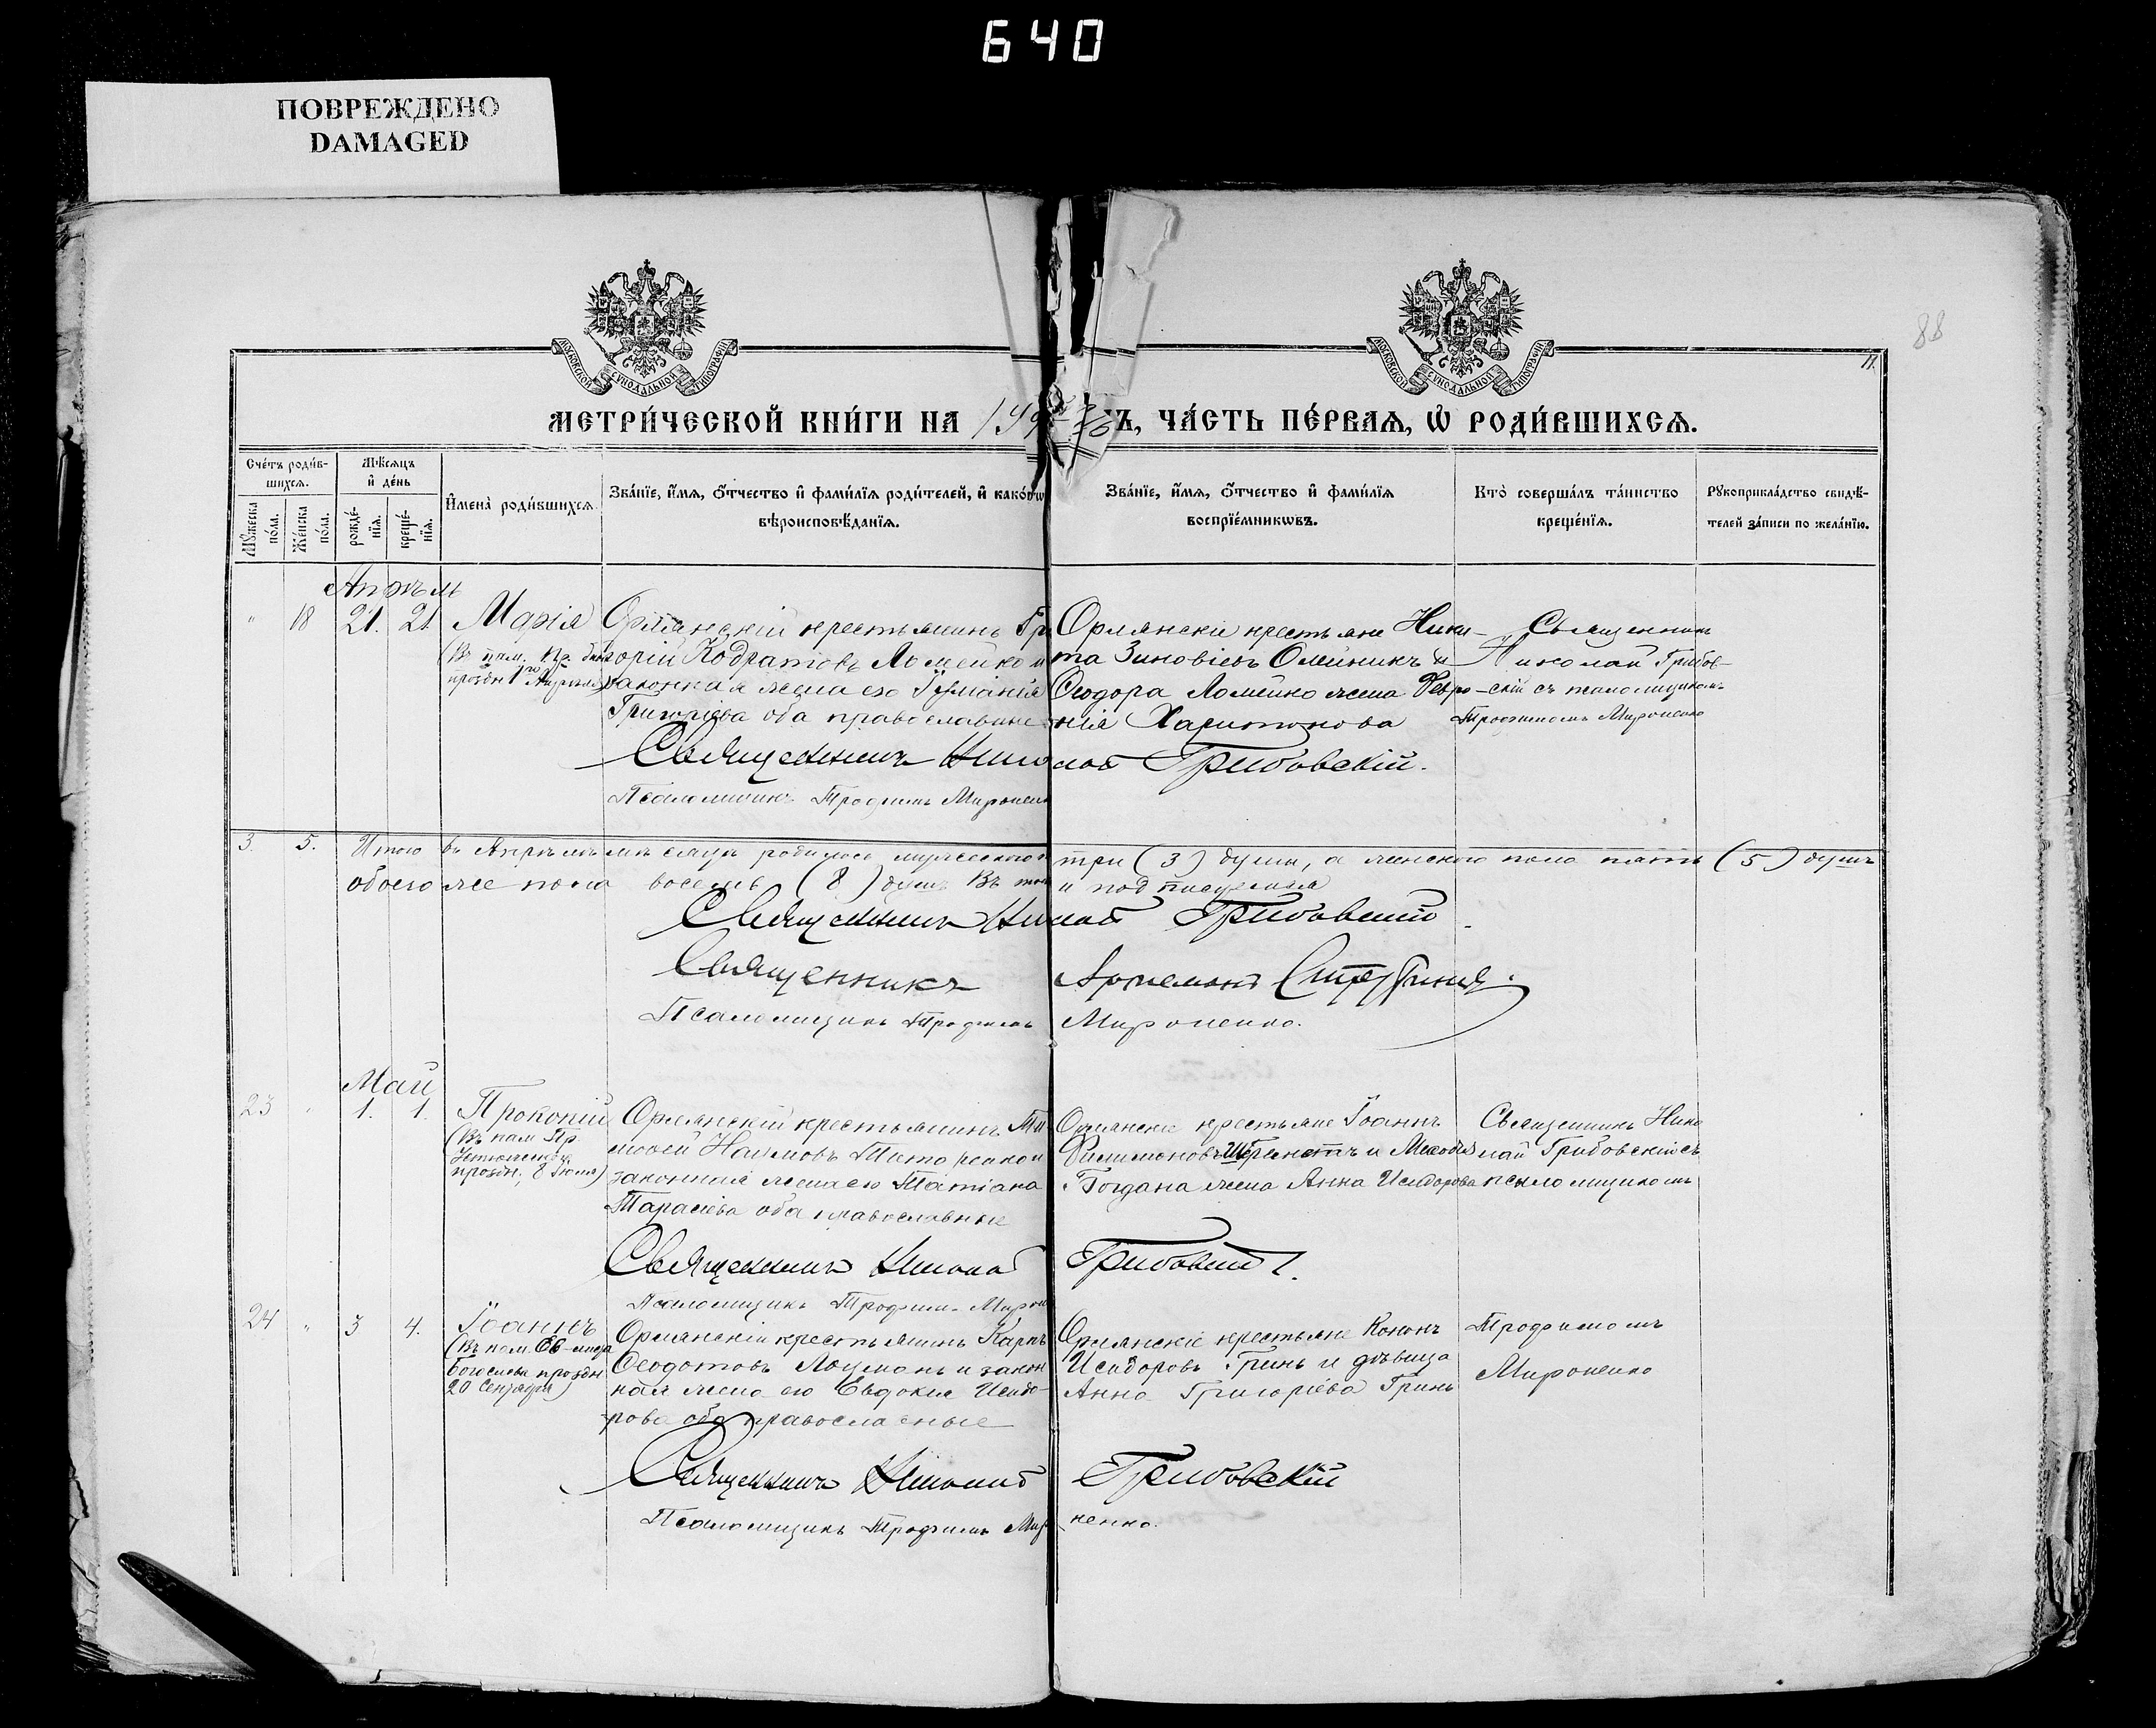 640
ПОВРЕЖДЕНО
DAMAGED
88
11.
МОСКОВСКОЙ СУНОДАЛЬНОЙ ТИПОГРАФІИ
МОСКОВСКОЙ СУНОДАЛЬНОЙ ТИПОГРАФІИ
МЕТРИ́ЧЕСКОЙ КНИ́ГИ НА
Ъ, ЧА́СТЬ ПЕ́РВАЯ, Ѡ҆ РОДИ́ВШИХСЯ.
Сче́тъ роди́в-
шихся.
Мꙋ́жеска
по́ла.
Же́нска
по́ла.
Мѣ́сяцъ
и҆ де́нь
рожде́-
нїя.
креще́-
нїя.
И҆мена̀ роди́вшихся.
Зва́нїе, и҆́мя, ѻ҆́тчество и҆ фами́лїя роди́телей, и҆ како́гѡ
вѣроисповѣ́данїя.
Зва́нїе, и҆́мя, ѻ҆́тчество и҆ фами́лїя
воспрїе́мникѡвъ.
Кто̀ соверша́лъ та́инство
креще́нїя.
Рꙋкоприкла́дство свидѣ́-
телей за́писи по жела́нїю.
Апрѣль
" 18 21. 21. Марія
Орлянскій крестьянинъ Гри
горій Кодратовъ Ломейко и
законная жена его
Григоріева оба православные
Орлянскіе крестьяне Ники-
та Зиновіевъ Олейникъ и
Ѳеодора Ломейко жена Февро
нія Харитонова
Священникъ
Николай Грибов-
скій съ псаломщикомъ
Трофимомъ Мироненко
Священникъ Николай Грибовскій.
Псаломщикъ Трофимъ Мироненко
3. 5. Итого въ Апрѣлѣ мѣсяцѣ родилось мужескаго три (3) души, а женскаго пола пять (5) душъ
обоего же пола восемь (8) душъ. Въ томъ и подписуемся
Священникъ Николай Грибовскій.
Священникъ Артемонъ
Псаломщикъ Трофимъ Мироненко.
Май
23 " 1. 1. Прокопій
(Въ пам. Пр.
праздн. 8 Іюля)
Орлянскій крестьянинъ Ти
моѳей Наумовъ и
законная жена его Татіана
Тарасіева оба православные
Орлянскіе крестьяне Іоаннъ
Филимоновъ и Меѳодія
Богдана жена Анна Исидорова
Священникъ Нико
лай Грибовскій съ
псаломщикомъ
Священникъ Николай Грибовскій.
Псаломщикъ Трофимъ Мироне
24 " 3 4. Іоаннъ
(Въ пам.
Богослова праздн
26 Сентября)
Орлянскій крестьянинъ Карпъ
Ѳеодотовъ Лоцманъ и закон
ная жена его Евдокія Исидо-
рова оба православные
Орлянскіе крестьяне Кононъ
Исидоровъ Гринь и дѣвица
Анна Григоріева Гринь
Трофимомъ
Мироненко
Священникъ Николай Грибовскій
Псаломщикъ Трофимъ Миро
ненко.